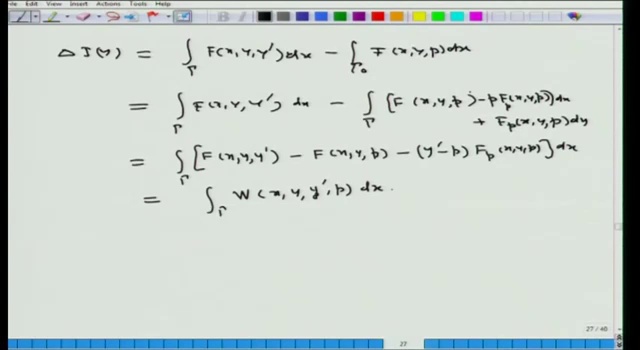 File View Insert Actions Tools Help
Δ J(y) = ∫_Γ F(x, y, y') dx − ∫_Γ₀ F(x, y, p) dx
= ∫_Γ F(x, y, y') dx − ∫_Γ [F(x, y, p) − p F_p(x, y, p)] dx
+ F_p(x, y, p) dy
= ∫_Γ [F(x, y, y') − F(x, y, p) − (y' − p) F_p(x, y, p)] dx
= ∫_Γ W(x, y, y', p) dx.
27 / 40
27